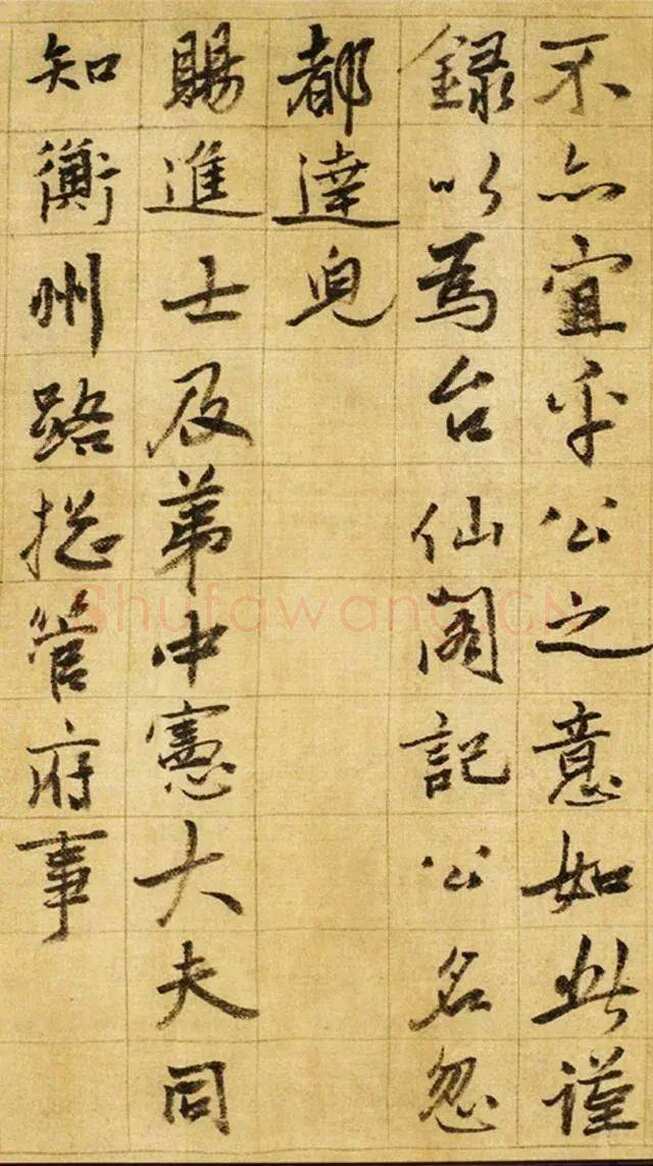 不亦宜乎公之意如此谨
録以為台仙閣記公名忽
都達皃
賜進士及苐中憲大夫同
知衡州路揔管府事
shufawang.CN